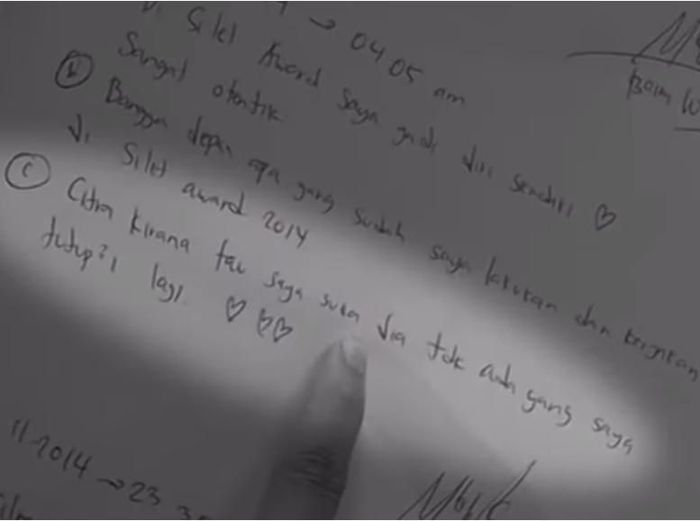 → 04 05 am
Di Silet Award saya jadi diri sendiri ♡
Sangat otentik
(b) Bangga depan apa yang sudah saya lakukan dan kerjakan
di Silet award 2014
(c) Citra kirana tau saya suka dia tak ada yang saya
tutup²i lagi ♡ ♡♡
Baim W
11 2014 → 23 3